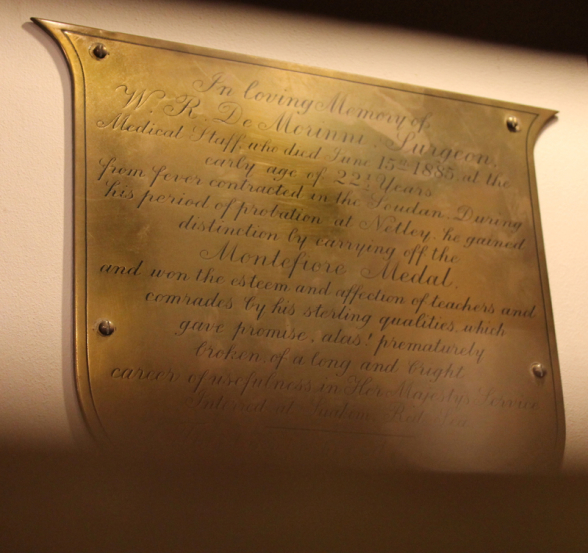 In loving Memory of
W. R. De Morinni, Surgeon,
Medical Staff, who died June 15th 1885, at the
early age of 22½ Years
from fever contracted in the Soudan. During
his period of probation at Netley, he gained
distinction by carrying off the
Montefiore Medal,
and won the esteem and affection of teachers and
comrades by his sterling qualities, which
gave promise, alas! prematurely
broken of a long and bright
career of usefulness in Her Majesty's Service
Interred at